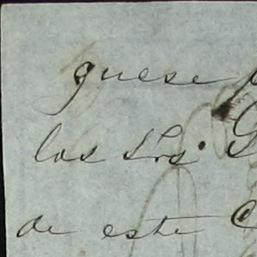 quese
los Srs.
de este